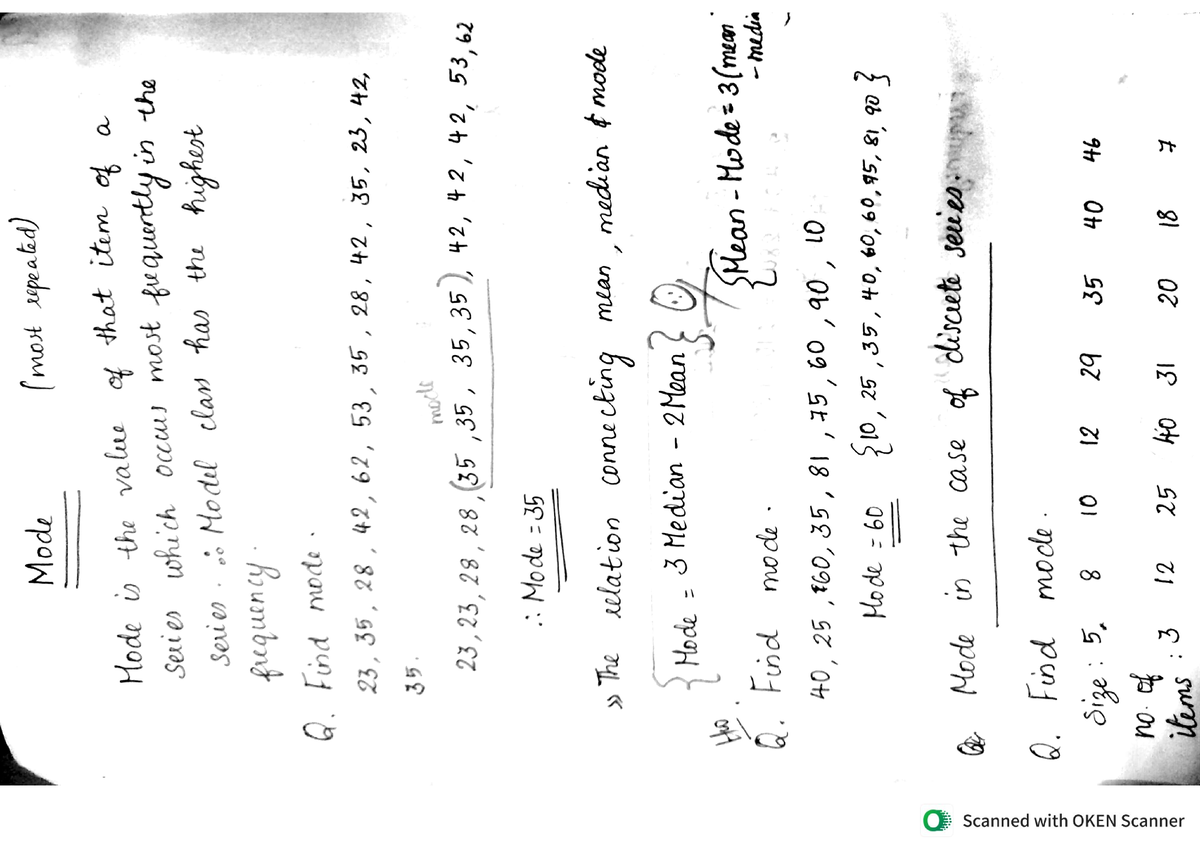 Mode (most repeated)
Mode is the value of that item of a
series which occurs most frequently in the
series. ∴ Model class has the highest
frequency.
Q. Find mode.
23, 35, 28, 42, 62, 53, 35, 28, 42, 35, 23, 42,
35.
mode
23, 23, 28, 28, (35, 35, 35, 35), 42, 42, 42, 53, 62
∴ Mode = 35
» The relation connecting mean, median & mode
{Mode = 3 Median - 2 Mean}
{Mean - Mode = 3 (mean
- media
Hw.
Q. Find mode.
40, 25, 60, 35, 81, 75, 60, 90, 10
Mode = 60 {10, 25, 35, 40, 60, 60, 75, 81, 90}
Mode in the case of discrete series.
Q. Find mode.
Size: 5 8 10 12 29 35 40 46
no. of
items : 3 12 25 40 31 20 18 7
Scanned with OKEN Scanner